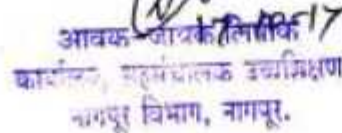 17-10-17
आवक-जावक लिपीक
कार्यालय, सहसंचालक उच्चशिक्षण
नागपूर विभाग, नागपूर.